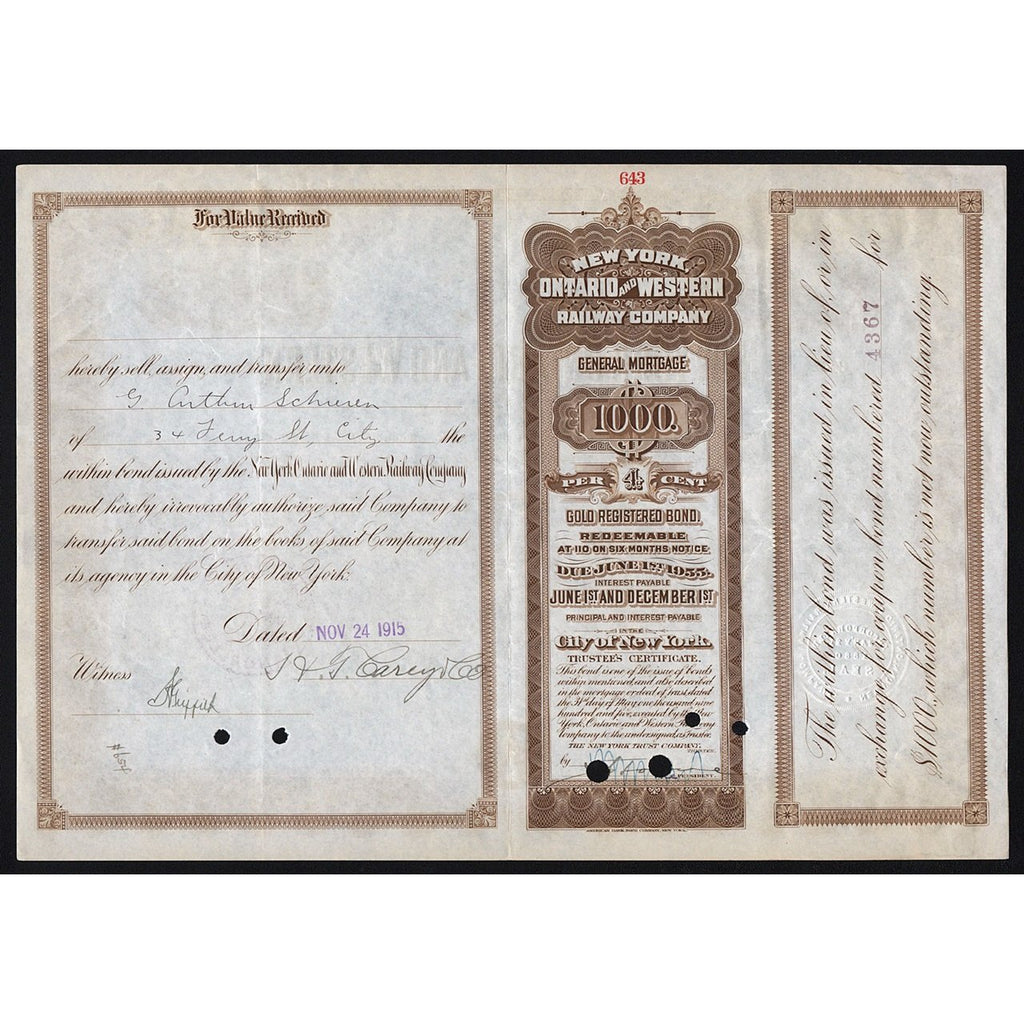 For Value Received
hereby sell, assign, and transfer unto
G. Arthur Schieren
of 34 Ferry St, City the
within bond issued by the New York Ontario and Western Railway Company
and hereby irrevocably authorize said Company to
transfer said bond on the books of said Company at
its agency in the City of New York.
Dated NOV 24 1915
Witness S & G. Carey & Co
643
NEW YORK
ONTARIO AND WESTERN
RAILWAY COMPANY
GENERAL MORTGAGE
$1000.
4 PER CENT
GOLD REGISTERED BOND.
REDEEMABLE
AT 110 ON SIX MONTHS NOTICE
DUE JUNE 1ST, 1955.
INTEREST PAYABLE
JUNE 1ST AND DECEMBER 1ST
PRINCIPAL AND INTEREST PAYABLE
IN THE
City of New York.
TRUSTEE'S CERTIFICATE.
This bond is one of the issue of bonds
within mentioned, and also described
in the mortgage or deed of trust dated
the 31st day of May, one thousand nine
hundred and five, executed by the New
York, Ontario and Western Railway
Company to the undersigned, as trustee.
THE NEW YORK TRUST COMPANY,
TRUSTEE.
by
PRESIDENT
AMERICAN BANK NOTE COMPANY, NEW YORK.
The within bond was issued in lieu of, or in
exchange for, coupon bond numbered 4367 for
$1000, which number is not now outstanding.